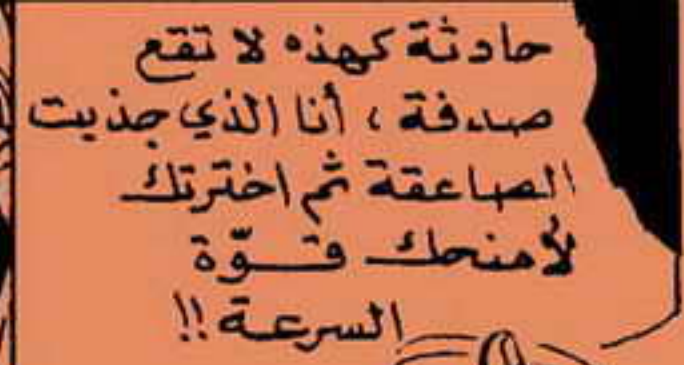 حادثة كهذه لا تقع
صدفة ، أنا الذي جذبت
الصاعقة ثم اخترتك
لأمنحك قـــوّة
السرعة !!